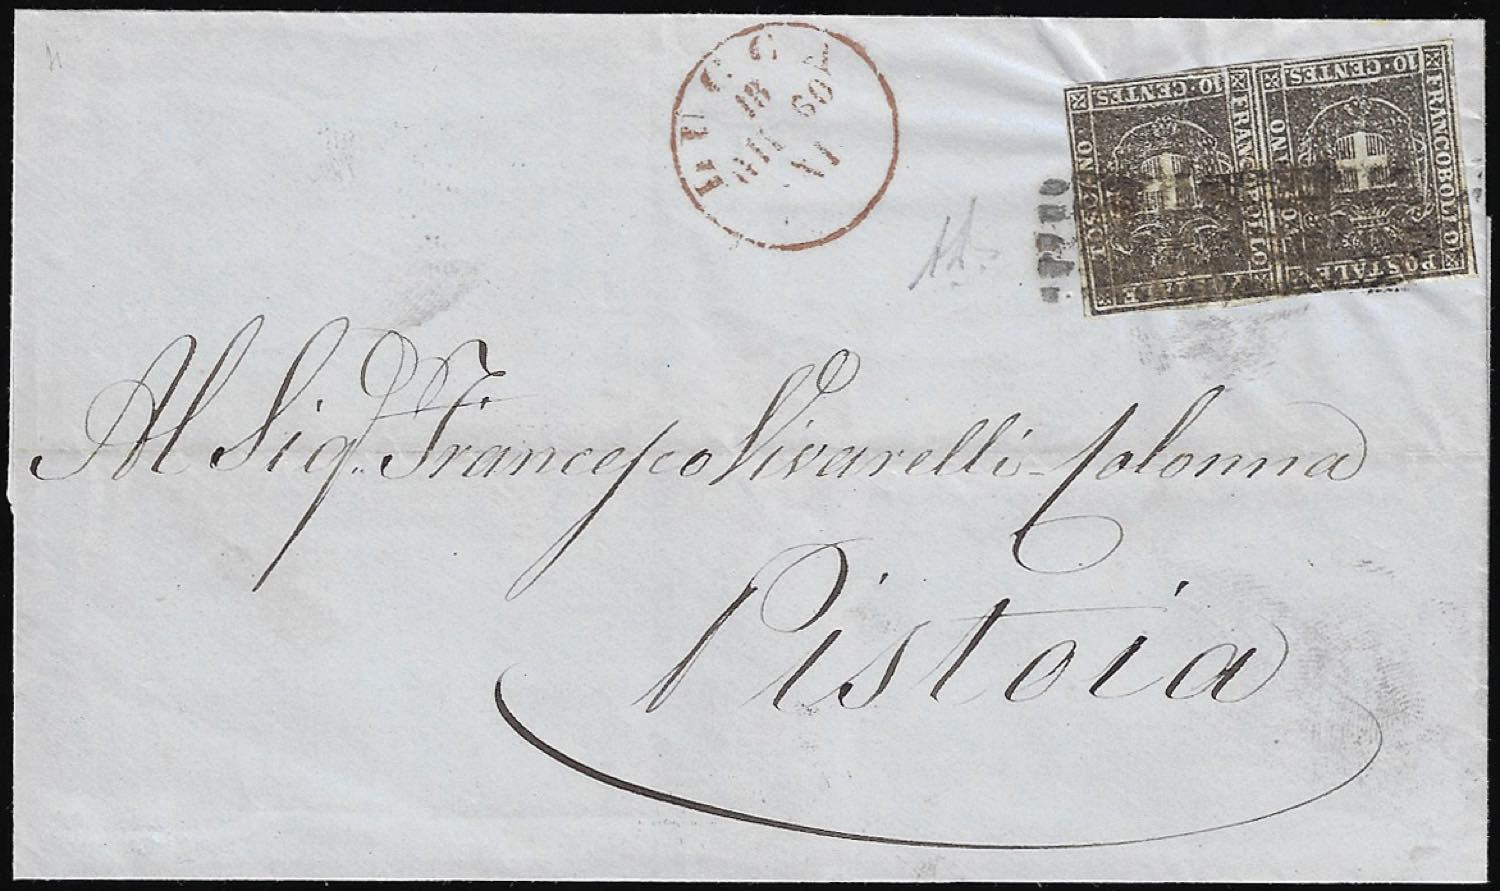 LUCCA
18
GIU
60
VI
10·CENTES
FRANCOBOLLO
POSTALE
10·CENTES
FRANCOBOLLO
POSTALE
Al Sig.r Francesco Vivarelli-Colonna
Pistoia